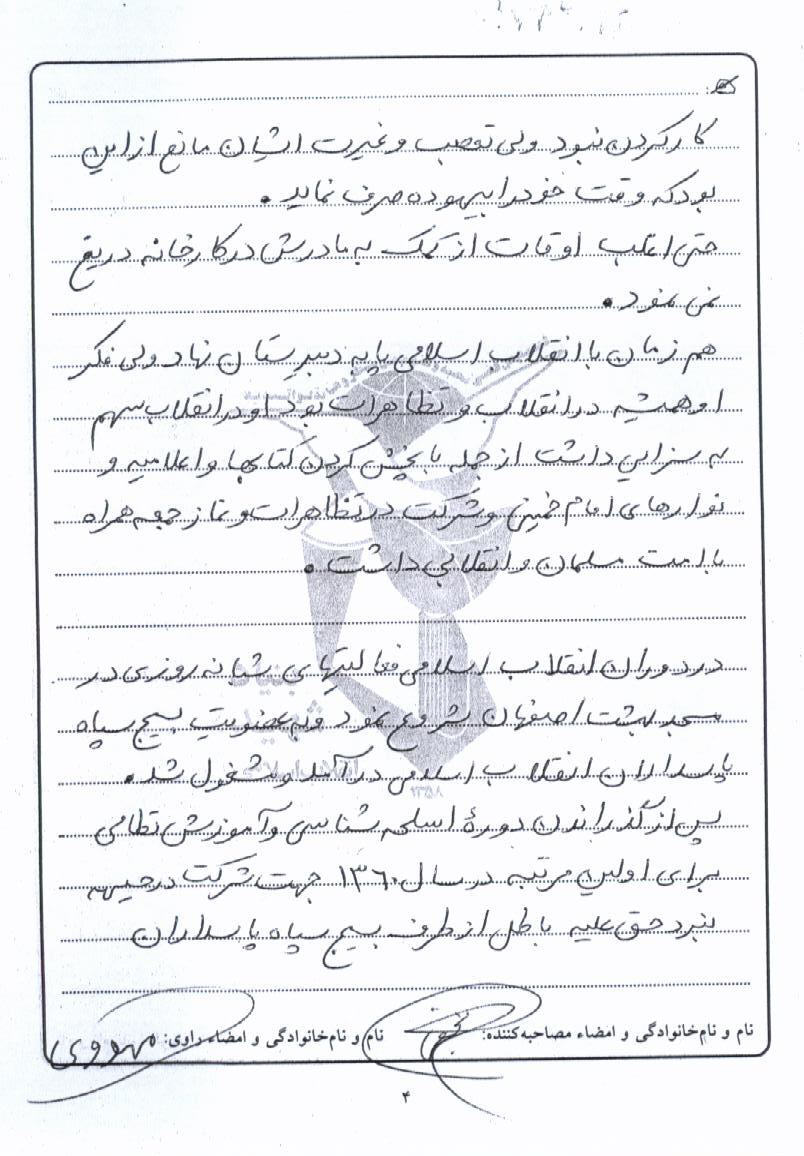 کارکردن نبود ولی تعصب و غیرت ایشان مانع از این
بود که وقت خود را بیهوده صرف نماید .
حتی اغلب اوقات از کمک به مادرش در کارخانه دریغ
نمی نمود .
هم زمان با انقلاب اسلامی پا به دبیرستان نهاد ولی فکر
او همیشه در انقلاب و تظاهرات بود او در انقلاب سهم
به سزایی داشت از جمله با پخش کردن کتابها و اعلامیه و
نوارهای امام خمینی و شرکت در تظاهرات و نماز جمعه همراه
با امت مسلمان و انقلابی داشت .
در دوران انقلاب اسلامی فعالیتهای شبانه روزی در
مسجد بهشت اصفهان شروع نمود و به عضویت بسیج سپاه
پاسداران انقلاب اسلامی در آمد و مشغول شد .
پس از گذراندن دورهٔ اسلحه شناسی و آموزش نظامی
برای اولین مرتبه در سال ۱۳۶۰ جهت شرکت در جبهه
نبرد حق علیه باطل از طرف بسیج سپاه پاسداران
نام و نام‌خانوادگی و امضاء مصاحبه‌کننده: نام و نام‌خانوادگی و امضاء راوی:
۴